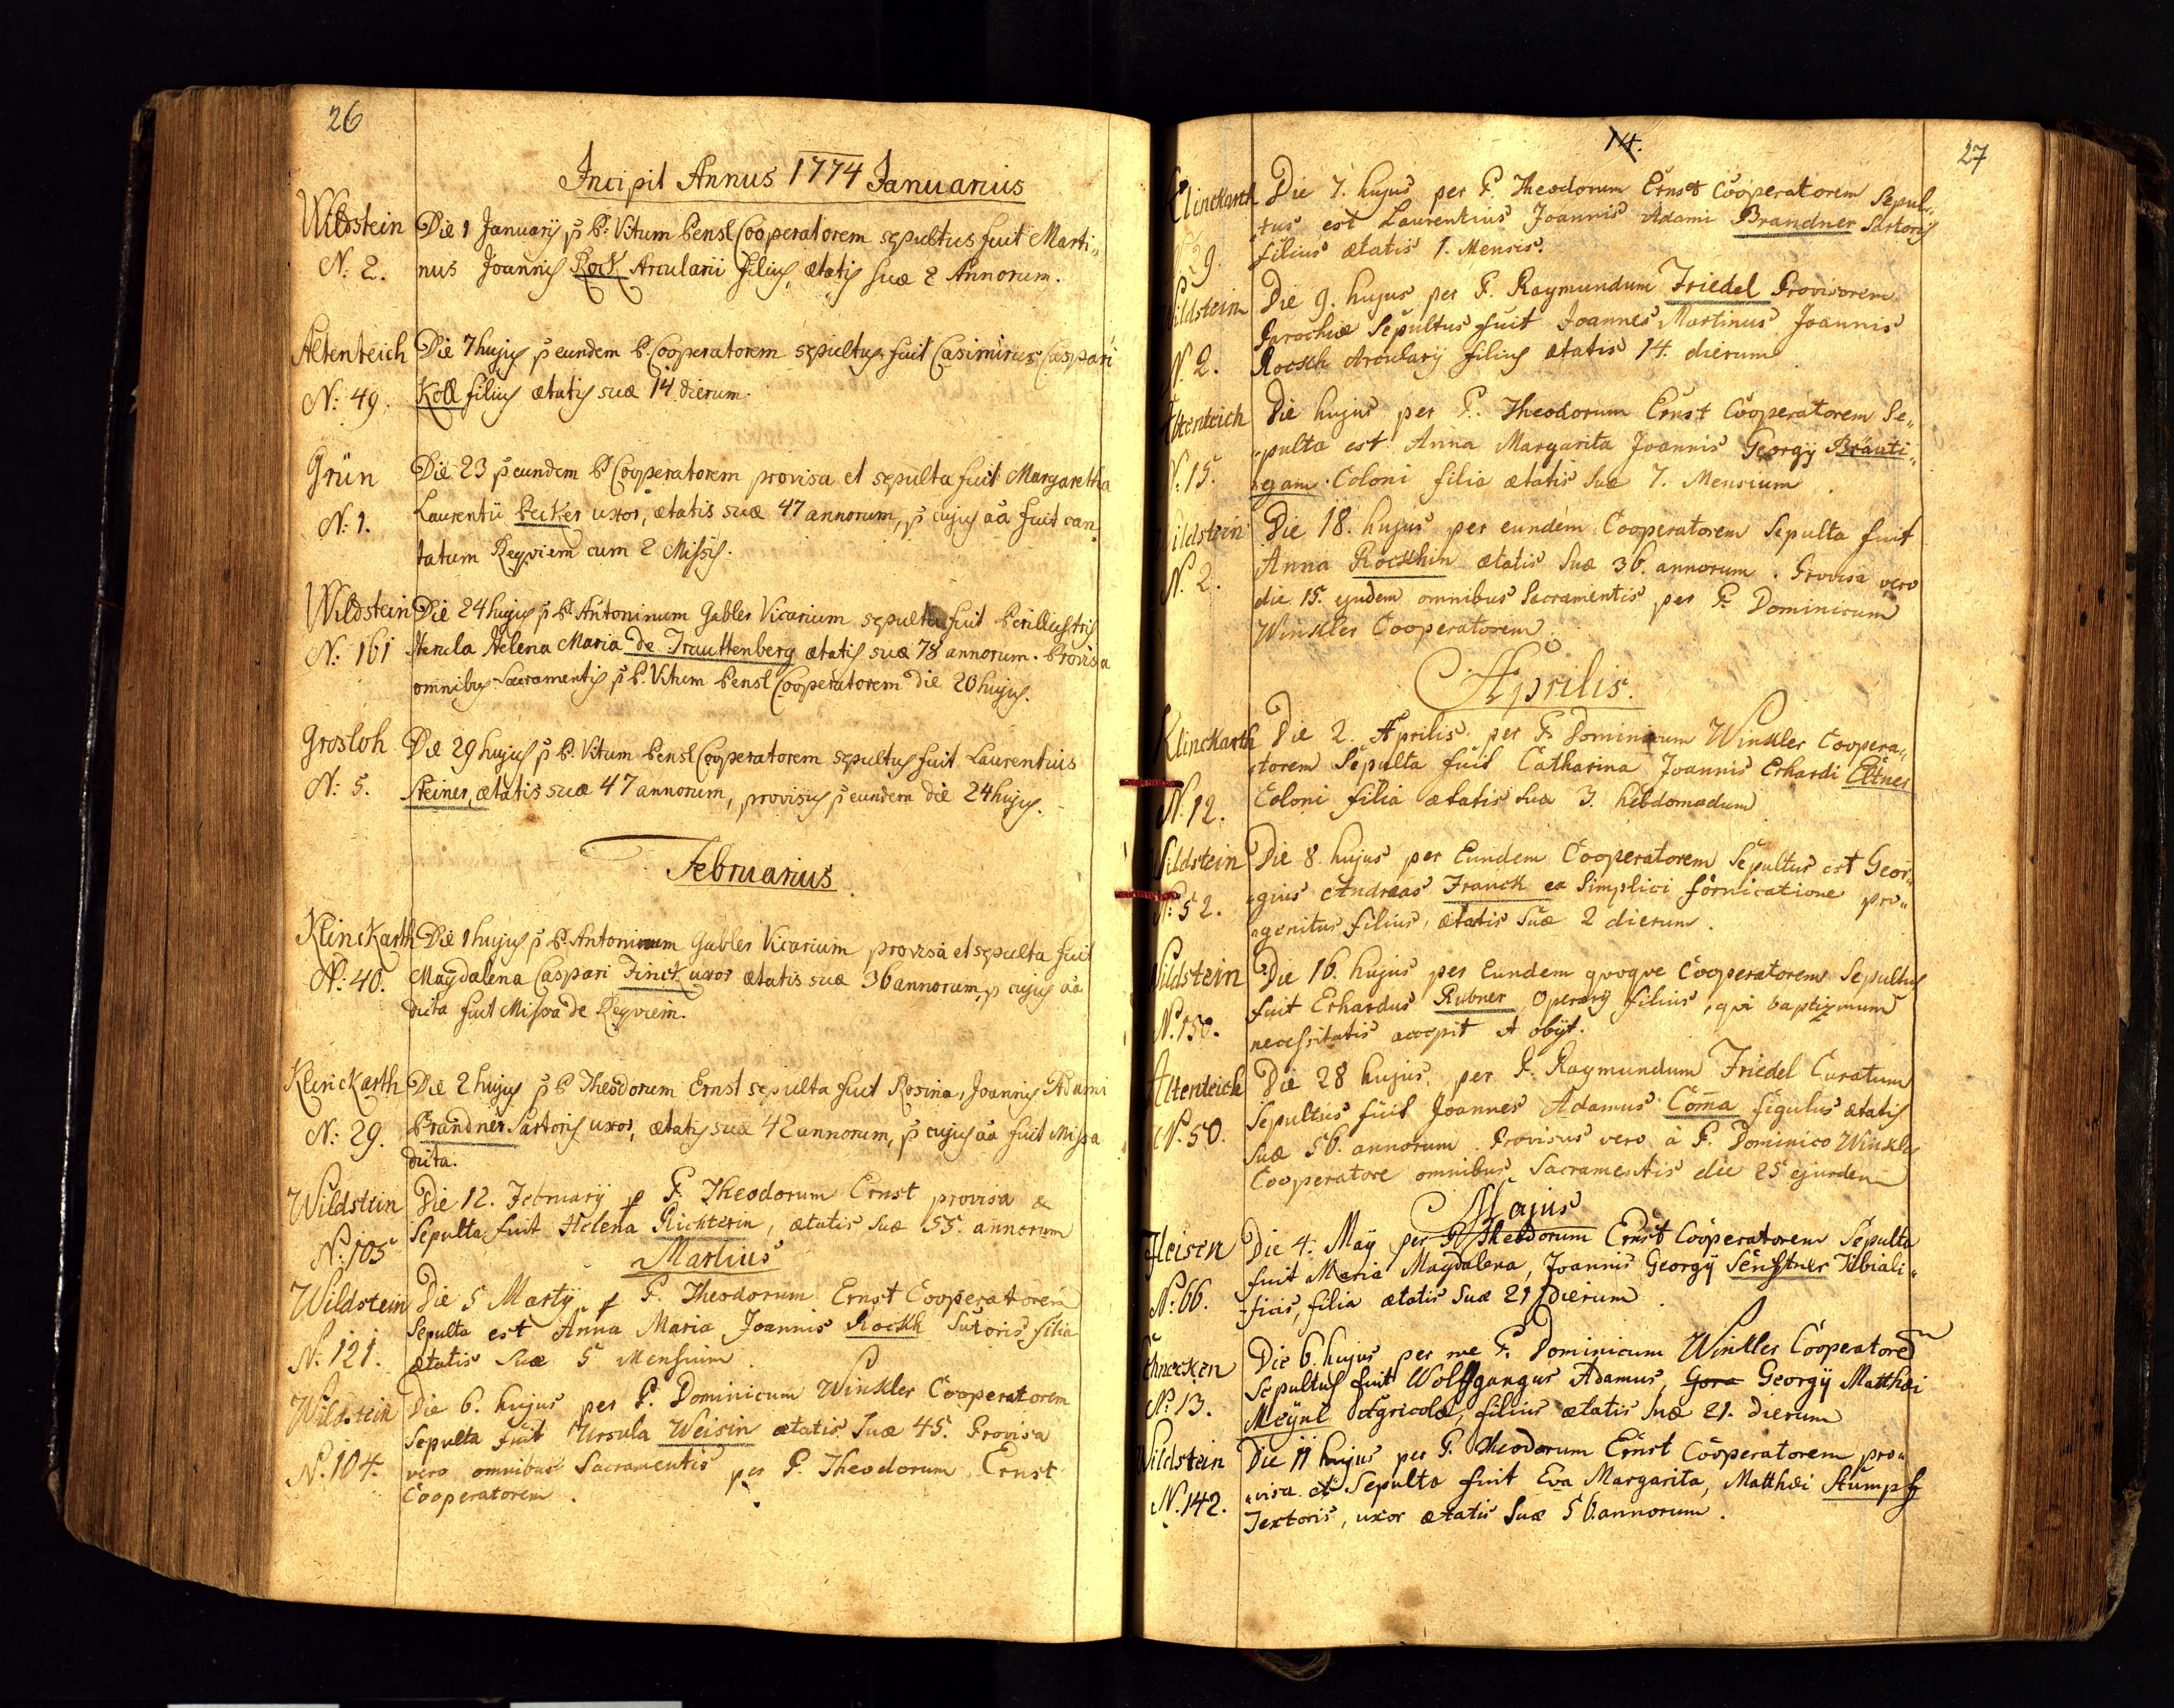 26
Incipit Annus 1774 Januarius
Wildstein Die 1 Januarij p P: Vitum Pensl Cooperatorem sepultus fuit Marti„
N: 2. nus Joannis Rock Arcularii filius, ætatis suæ 2 Annorum.
Altenteich Die 7 hujus p eundem P. Cooperatorem sepultus fuit Casimirus Caspari
N: 49. Koll filius ætatis suæ 14 dierum.
Grün Die 23 p eundem P Cooperatorem provisa et sepulta fuit Margaretha
N: 1. Laurentii Pecker uxor, ætatis suæ 47 annorum, p cujus aa fuit can
tatum Reqviem cum 2 Missis.
Wildstein Die 24 hujus p P. Antoninum Gabler Vicarium sepulta fuit Perillustris
N: 161 Herula Helena Maria de Trauttenberg ætatis suæ 78 annorum. Provisa
omnibus Sacramentis p P. Vitum Pensl Cooperatorem die 20 hujus.
Grosloh Die 29 hujus p P. Vitum Pensl Cooperatorem sepultus fuit Laurentius
N: 5. Steiner, ætatis suæ 47 annorum, provisus p eundem die 24 hujus.
Februarius
Klinckarth Die 1 hujus p P. Antoninum Gabler Vicarium provisa et sepulta fuit
N: 40. Magdalena Caspari Finck uxor ætatis suæ 36 annorum, p cujus aa
dicta fuit Missa de Reqviem.
Klinckarth Die 2 hujus p P Theodorum Ernst sepulta fuit Rosina, Joannis Adami
N: 29. Brandner Sartoris uxor, ætatis suæ 42 annorum, p cujus aa fuit Missa
dicta.
Wildstein Die 12. Februarij p P. Theodorum Ernst provisa &
N: 105 Sepulta fuit Helena Richterin, ætatis suæ 55. annorum
Martius
Wildstein Die 5 Martij p P. Theodorum Ernst Cooperatorem
N. 121. Sepulta est Anna Maria Joannis Rockh Sutoris filia
ætatis suæ 5 Mensium.
Wildstein Die 6. hujus per P. Dominicum Winkler Cooperatorem
N. 104. Sepulta fuit Ursula Weisin ætatis suæ 45. Provisa
vero omnibus Sacramentis per P. Theodorum Ernst
Cooperatorem.
14.
27
Klinckarth Die 7. hujus per P. Theodorum Ernst Cooperatorem Sepul„
29. „tus est Laurentius Joannis Adami Brandner Sartoris
filius ætatis 1. Mensis.
Wildstein Die 9. hujus per P. Raymundum Friedel Provisorem
N. 2. Parochiæ Sepultus fuit Joannes Martinus Joannis
Rockh Arcularij filius ætatis 14. dierum
Altenteich Die hujus per P. Theodorum Ernst Cooperatorem Se„
N. 15. „pulta est Anna Margarita Joannis Georgij Bräuti„
„gam Coloni filia ætatis suæ 7. Mensium.
Wildstein Die 18. hujus per eundem Cooperatorem Sepulta fuit
N. 2. Anna Rockhin ætatis suæ 36. annorum. Provisa vero
die 15. ejusdem omnibus Sacramentis per P. Dominicum
Winkler Cooperatorem.
Aprilis.
Klinckarth Die 2. Aprilis per P. Dominicum Winkler Coopera„
N. 12. „torem Sepulta fuit Catharina Joannis Erhardi Eltner
Coloni filia ætatis suæ 3. hebdomadum
Wildstein Die 8. hujus per Eundem Cooperatorem Sepultus est Geor„
N: 52. „gius Andreas Franck ex simplici fornicatione pro„
„genitus filius, ætatis suæ 2 dierum.
Wildstein Die 16. hujus per Eundem qvoqve Cooperatorem Sepultus
N. 150. fuit Erhardus Rubner Operarij filius, qvi baptizmum
necessitatis accepit et obijt.
Altenteich Die 28 hujus, per P. Raymundum Friedel Curatum
N. 50. Sepultus fuit Joannes Adamus Coma figulus ætatis
suæ 56. annorum. Provisus vero à P. Dominico Winkler
Cooperatore omnibus Sacramentis die 25 ejusdem
Majus
Fleisen Die 4. Maij per P. Theodorum Ernst Cooperatorem Sepulta
N: 66. fuit Maria Magdalena, Joannis Georgij Senftner Tibiali„
„ficis, filia ætatis suæ 21 dierum.
Schnecken Die 6. hujus per me P. Dominicum Winkler Cooperatorem
N. 13. Sepultus fuit Wolfgangus Adamus, Geora Georgij Matthæi
Meÿnl Agricolæ, filius ætatis suæ 21. dierum
Wildstein Die 11 hujus per P. Theodorum Ernst Cooperatorem pro„
N. 142. „visa et Sepulta fuit Eva Margarita, Matthæi Stumpf
Textoris, uxor ætatis suæ 56. annorum.